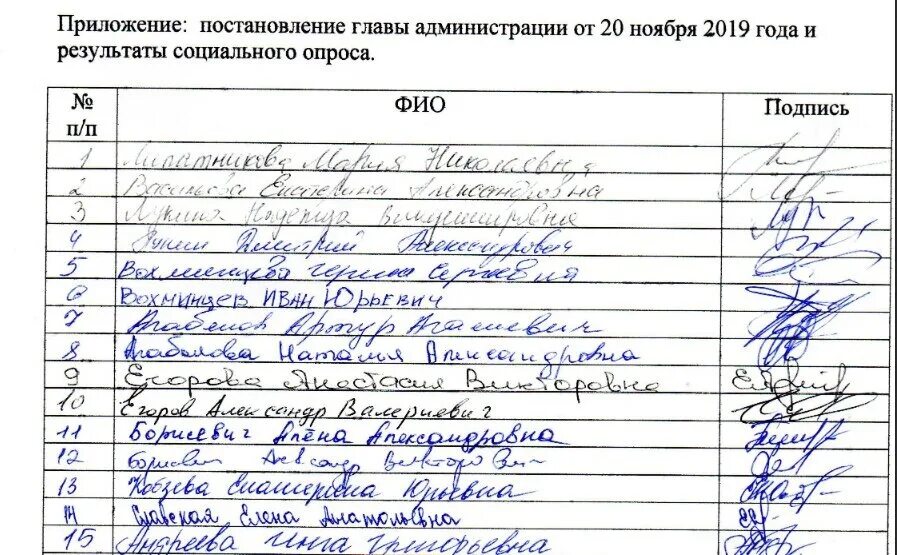 Приложение: постановление главы администрации от 20 ноября 2019 года и
результаты социального опроса.
№ п/п ФИО Подпись
1 Липатникова Мария Николаевна
2 Васильева Екатерина Александровна
3 Лукина Надежда Владимировна
4 Лунин Дмитрий Александрович
5 Вохминцева Сергеевна
6 Вохминцев Иван Юрьевич
7 Агабалов Артур Агасиевич
8 Агабалова Наталья Александровна
9 Егорова Анастасия Викторовна
10 Егоров Александр Валериевич
11 Борисевич Алёна Александровна
12 Борисевич Александр Викторович
13 Кобзева Екатерина Юрьевна
14 Славская Елена Анатольевна
15 Андреева Инга Григорьевна